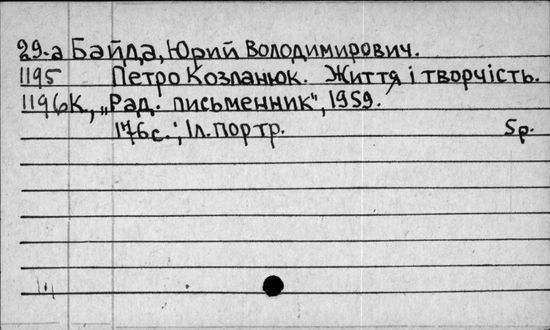 29.-а Байда, Юрий Володимирович.
1195 Петро Козланюк. Життя і творчість.
1196 К., „Рад. письменник", 1959.
176с.; Іл. портр. 5р.